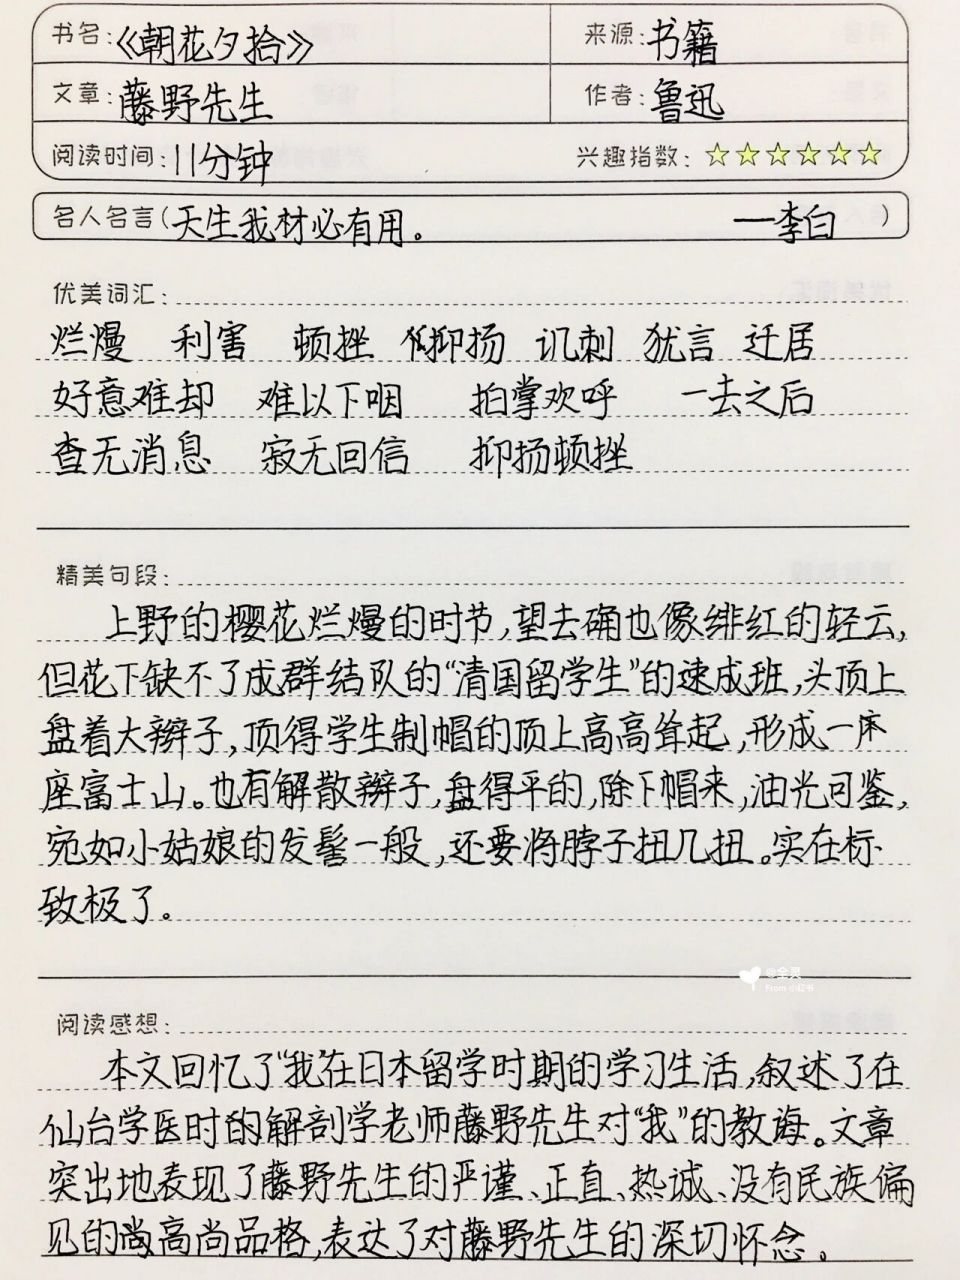 书名:《朝花夕拾》 来源:书籍
文章:藤野先生 作者:鲁迅
阅读时间:11分钟 兴趣指数:☆☆☆☆☆☆
名人名言(天生我材必有用。 ——李白)
优美词汇:
烂熳 利害 顿挫 抑扬 讥刺 犹言 迁居
好意难却 难以下咽 拍掌欢呼 一去之后
查无消息 寂无回信 抑扬顿挫
精美句段:
上野的樱花烂熳的时节,望去确也像绯红的轻云,
但花下缺不了成群结队的“清国留学生”的速成班,头顶上
盘着大辫子,顶得学生制帽的顶上高高耸起,形成一
座富士山。也有解散辫子,盘得平的,除下帽来,油光可鉴,
宛如小姑娘的发髻一般,还要将脖子扭几扭。实在标
致极了。
@全灵
From 小红书
阅读感想:
本文回忆了“我”在日本留学时期的学习生活,叙述了在
仙台学医时的解剖学老师藤野先生对“我”的教诲。文章
突出地表现了藤野先生的严谨、正直、热诚、没有民族偏
见的高尚品格,表达了对藤野先生的深切怀念。